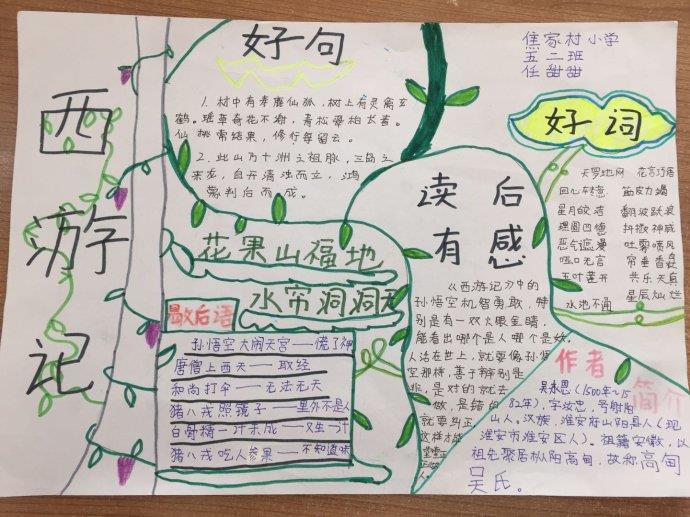 西游记
好句
1. 村中有寿鹿仙狐,树上有灵禽玄
鹤。瑶草奇花不谢,青松翠柏长春。
仙桃常结果,修竹每留云。
2. 此山乃十洲之祖脉,三岛之
来龙,自开清浊而立,鸿
蒙判后而成。
焦家村小学
五二班
任甜甜
好词
天罗地网 花言巧语
回心转意 筋皮力竭
星月皎洁 翻波跃浪
抖擞神威
恶气遮漫 吐雾喷风
哑口无言
五叶莲开 共乐天真
水泄不通 星辰灿烂
花果山福地
水帘洞洞天
歇后语
孙悟空大闹天宫——慌了神
唐僧上西天——取经
和尚打伞——无法无天
猪八戒照镜子——里外不是人
白骨精一计未成——又生一计
猪八戒吃人参果——不知道味
读后
有感
《西游记》中的
孙悟空机智勇敢,特
别是有一双火眼金睛,
能看出哪个是人哪个是妖。
人活在世上,就要像孙悟
空那样,善于辨别是
非,是对的就去
做,是错的
就要纠正
这样才能
堂堂正
正做
人。
作者
简介
吴承恩(1500年~15
82年),字汝忠,号射阳
山人。汉族,淮安府山阳县人(现
淮安市淮安区人)。祖籍安徽,以
祖先聚居枞阳高甸,故称高甸
吴氏。